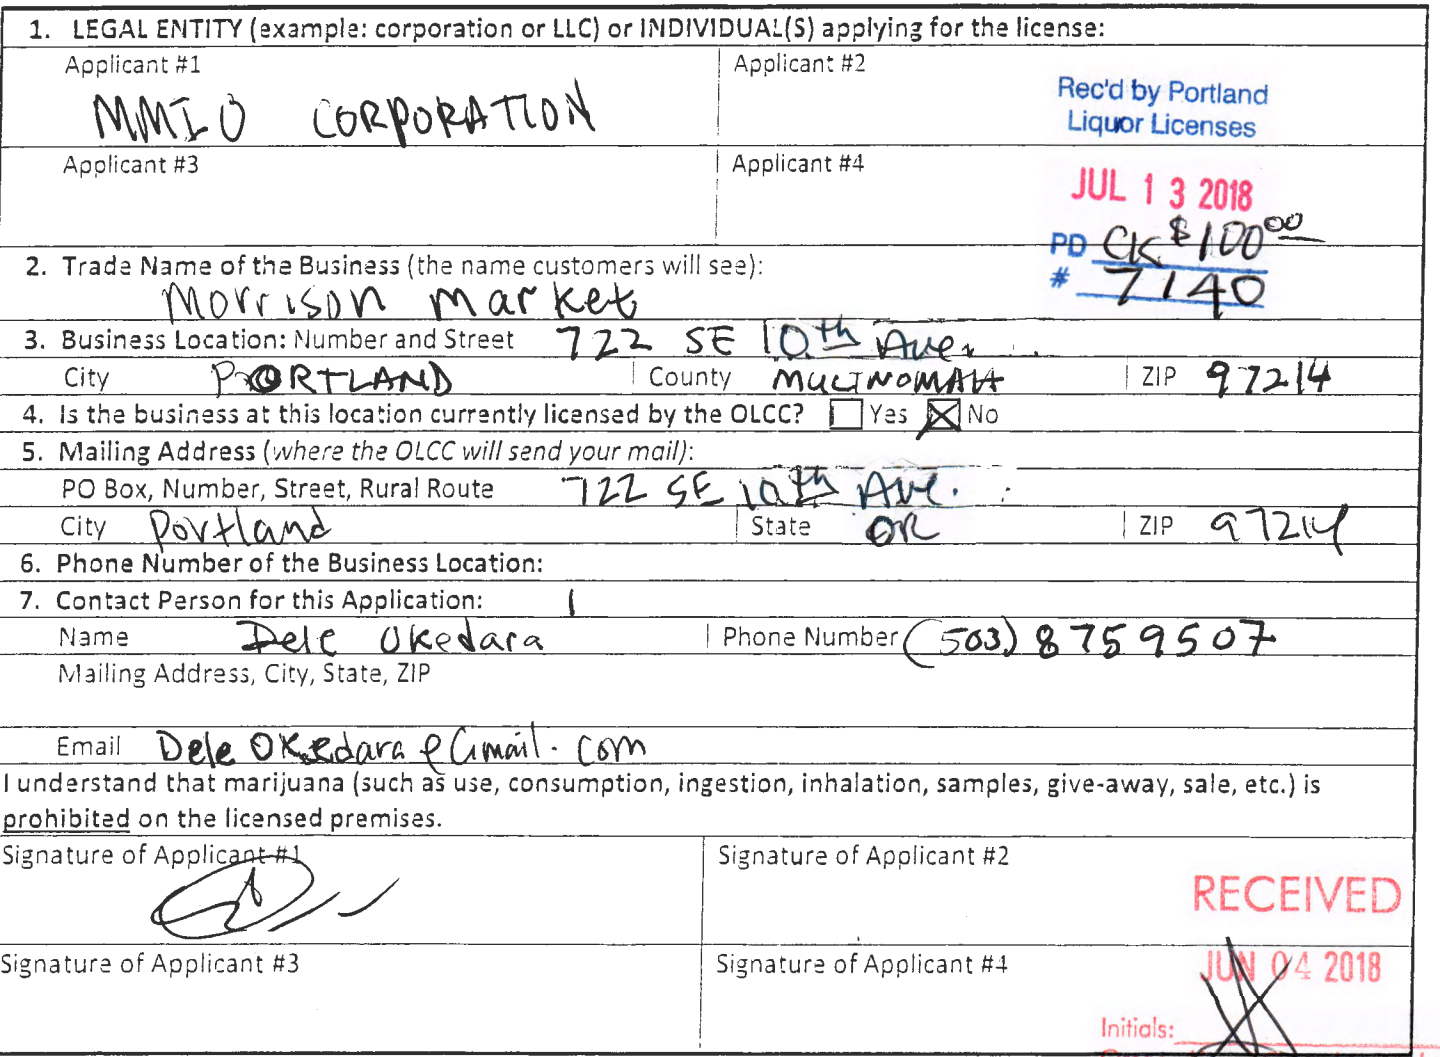 1. LEGAL ENTITY (example: corporation or LLC) or INDIVIDUAL(S) applying for the license:
Applicant #1
MMIO CORPORATION
Applicant #2
Rec'd by Portland
Liquor Licenses
Applicant #3
Applicant #4
JUL 13 2018
PD CK $100 00
# 7140
2. Trade Name of the Business (the name customers will see):
Morrison Market
3. Business Location: Number and Street 722 SE 10th Ave.
City PORTLAND County MULTNOMAH ZIP 97214
4. Is the business at this location currently licensed by the OLCC? Yes No
5. Mailing Address (where the OLCC will send your mail):
PO Box, Number, Street, Rural Route 722 SE 10th Ave.
City Portland State OR ZIP 97214
6. Phone Number of the Business Location:
7. Contact Person for this Application:
Name Dele Okedara Phone Number (503) 8759507
Mailing Address, City, State, ZIP
Email Dele Okedara@Gmail.com
I understand that marijuana (such as use, consumption, ingestion, inhalation, samples, give-away, sale, etc.) is
prohibited on the licensed premises.
Signature of Applicant #1
Signature of Applicant #2
RECEIVED
Signature of Applicant #3
Signature of Applicant #4
JUN 04 2018
Initials: